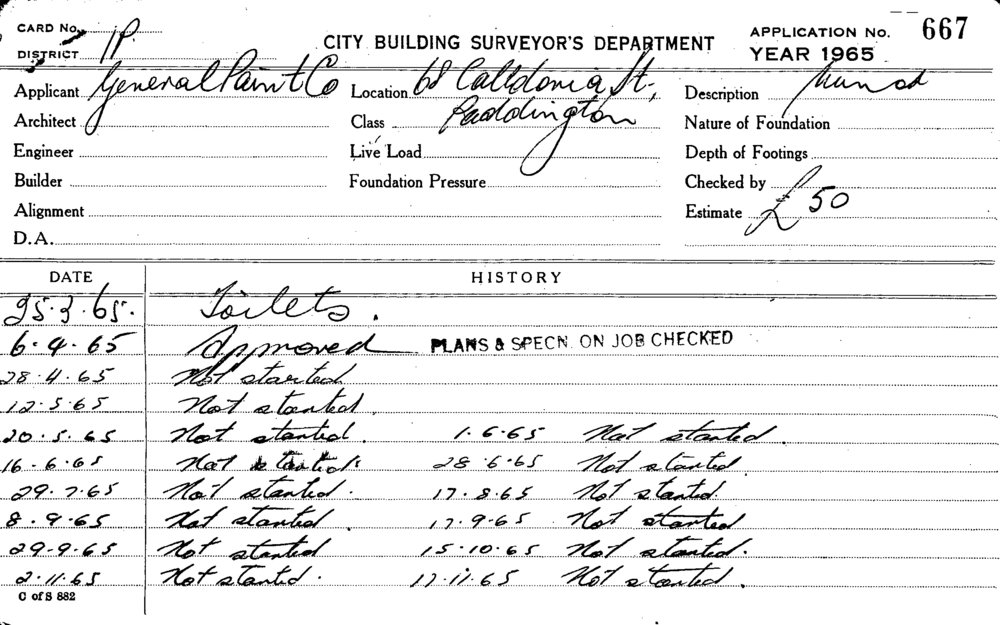 CARD No. 
DISTRICT 1P.
CITY BUILDING SURVEYOR'S DEPARTMENT
APPLICATION No. 667
YEAR 1965
Applicant General Paint Co Location 68 Calldonia St, Description
Architect Class Paddington Nature of Foundation
Engineer Live Load Depth of Footings
Builder Foundation Pressure Checked by
Alignment Estimate £50
D.A.
DATE HISTORY
25.3.65. Toilets.
6.4.65 Approved PLANS & SPECN. ON JOB CHECKED
28.4.65 Not started
12.5.65 Not started.
20.5.65 Not started. 1.6.65 Not started.
16.6.65 Not started. 28.6.65 Not started.
29.7.65 Not started. 17.8.65 Not started.
8.9.65 Not started. 17.9.65 Not started
29.9.65 Not started 15.10.65 Not started.
2.11.65 Not started. 17.11.65 Not started.
C of S 882